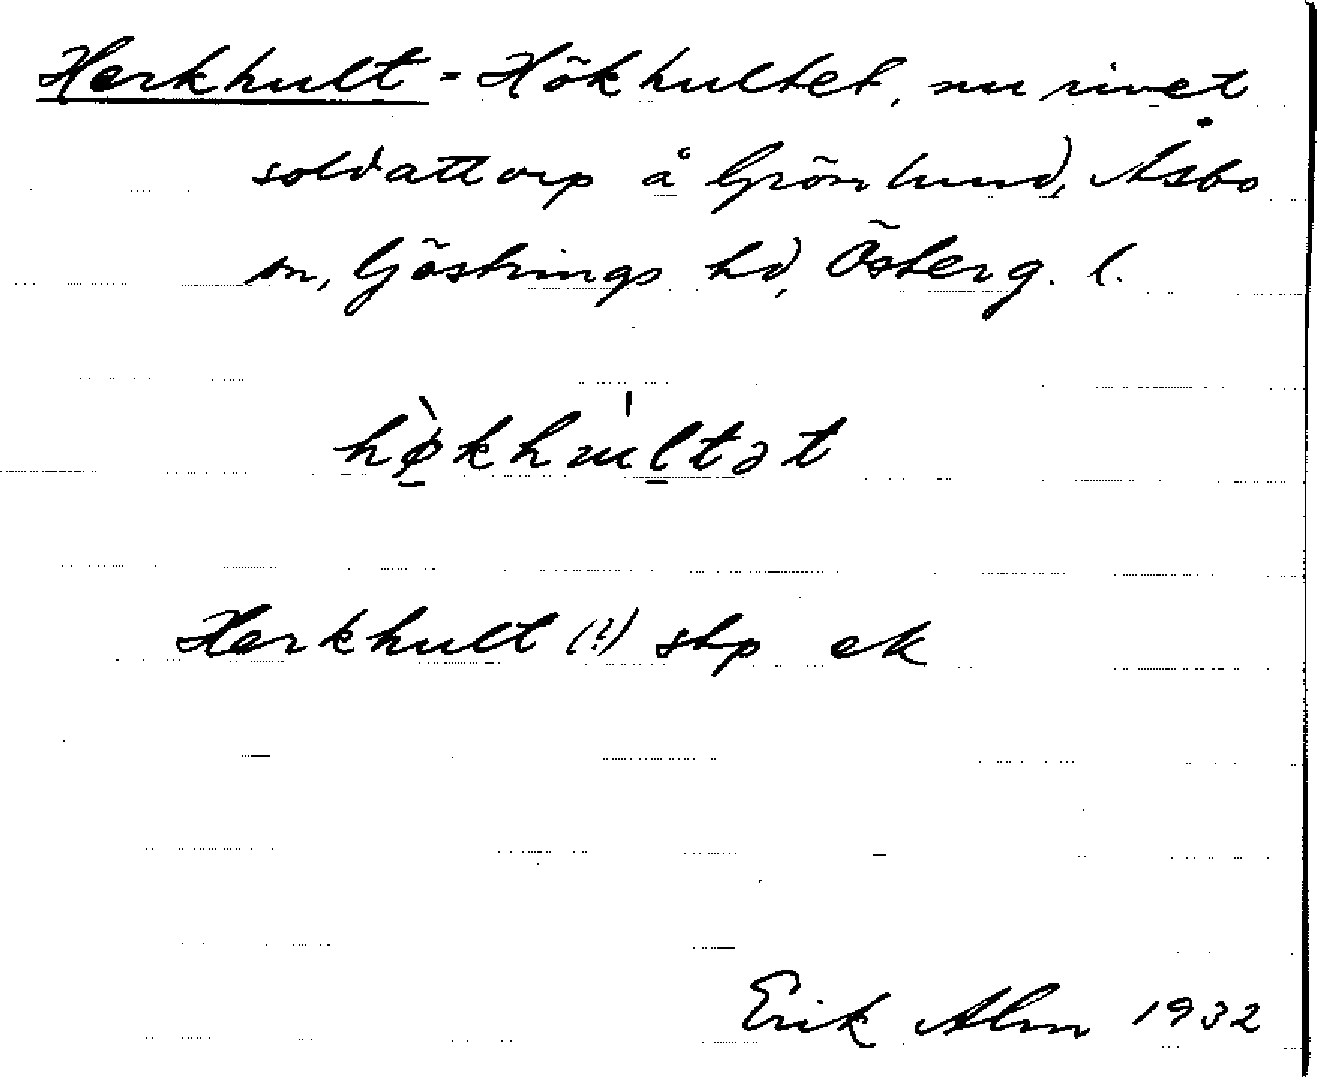 Herkhult - Hökhultet, nu rivet
soldattorp å Grönlund, Åsbo
sn, Göstrings hd, Österg. l.
hø̀khu̍ltət
Herkhult (!) stp ek
Erik Alm 1932